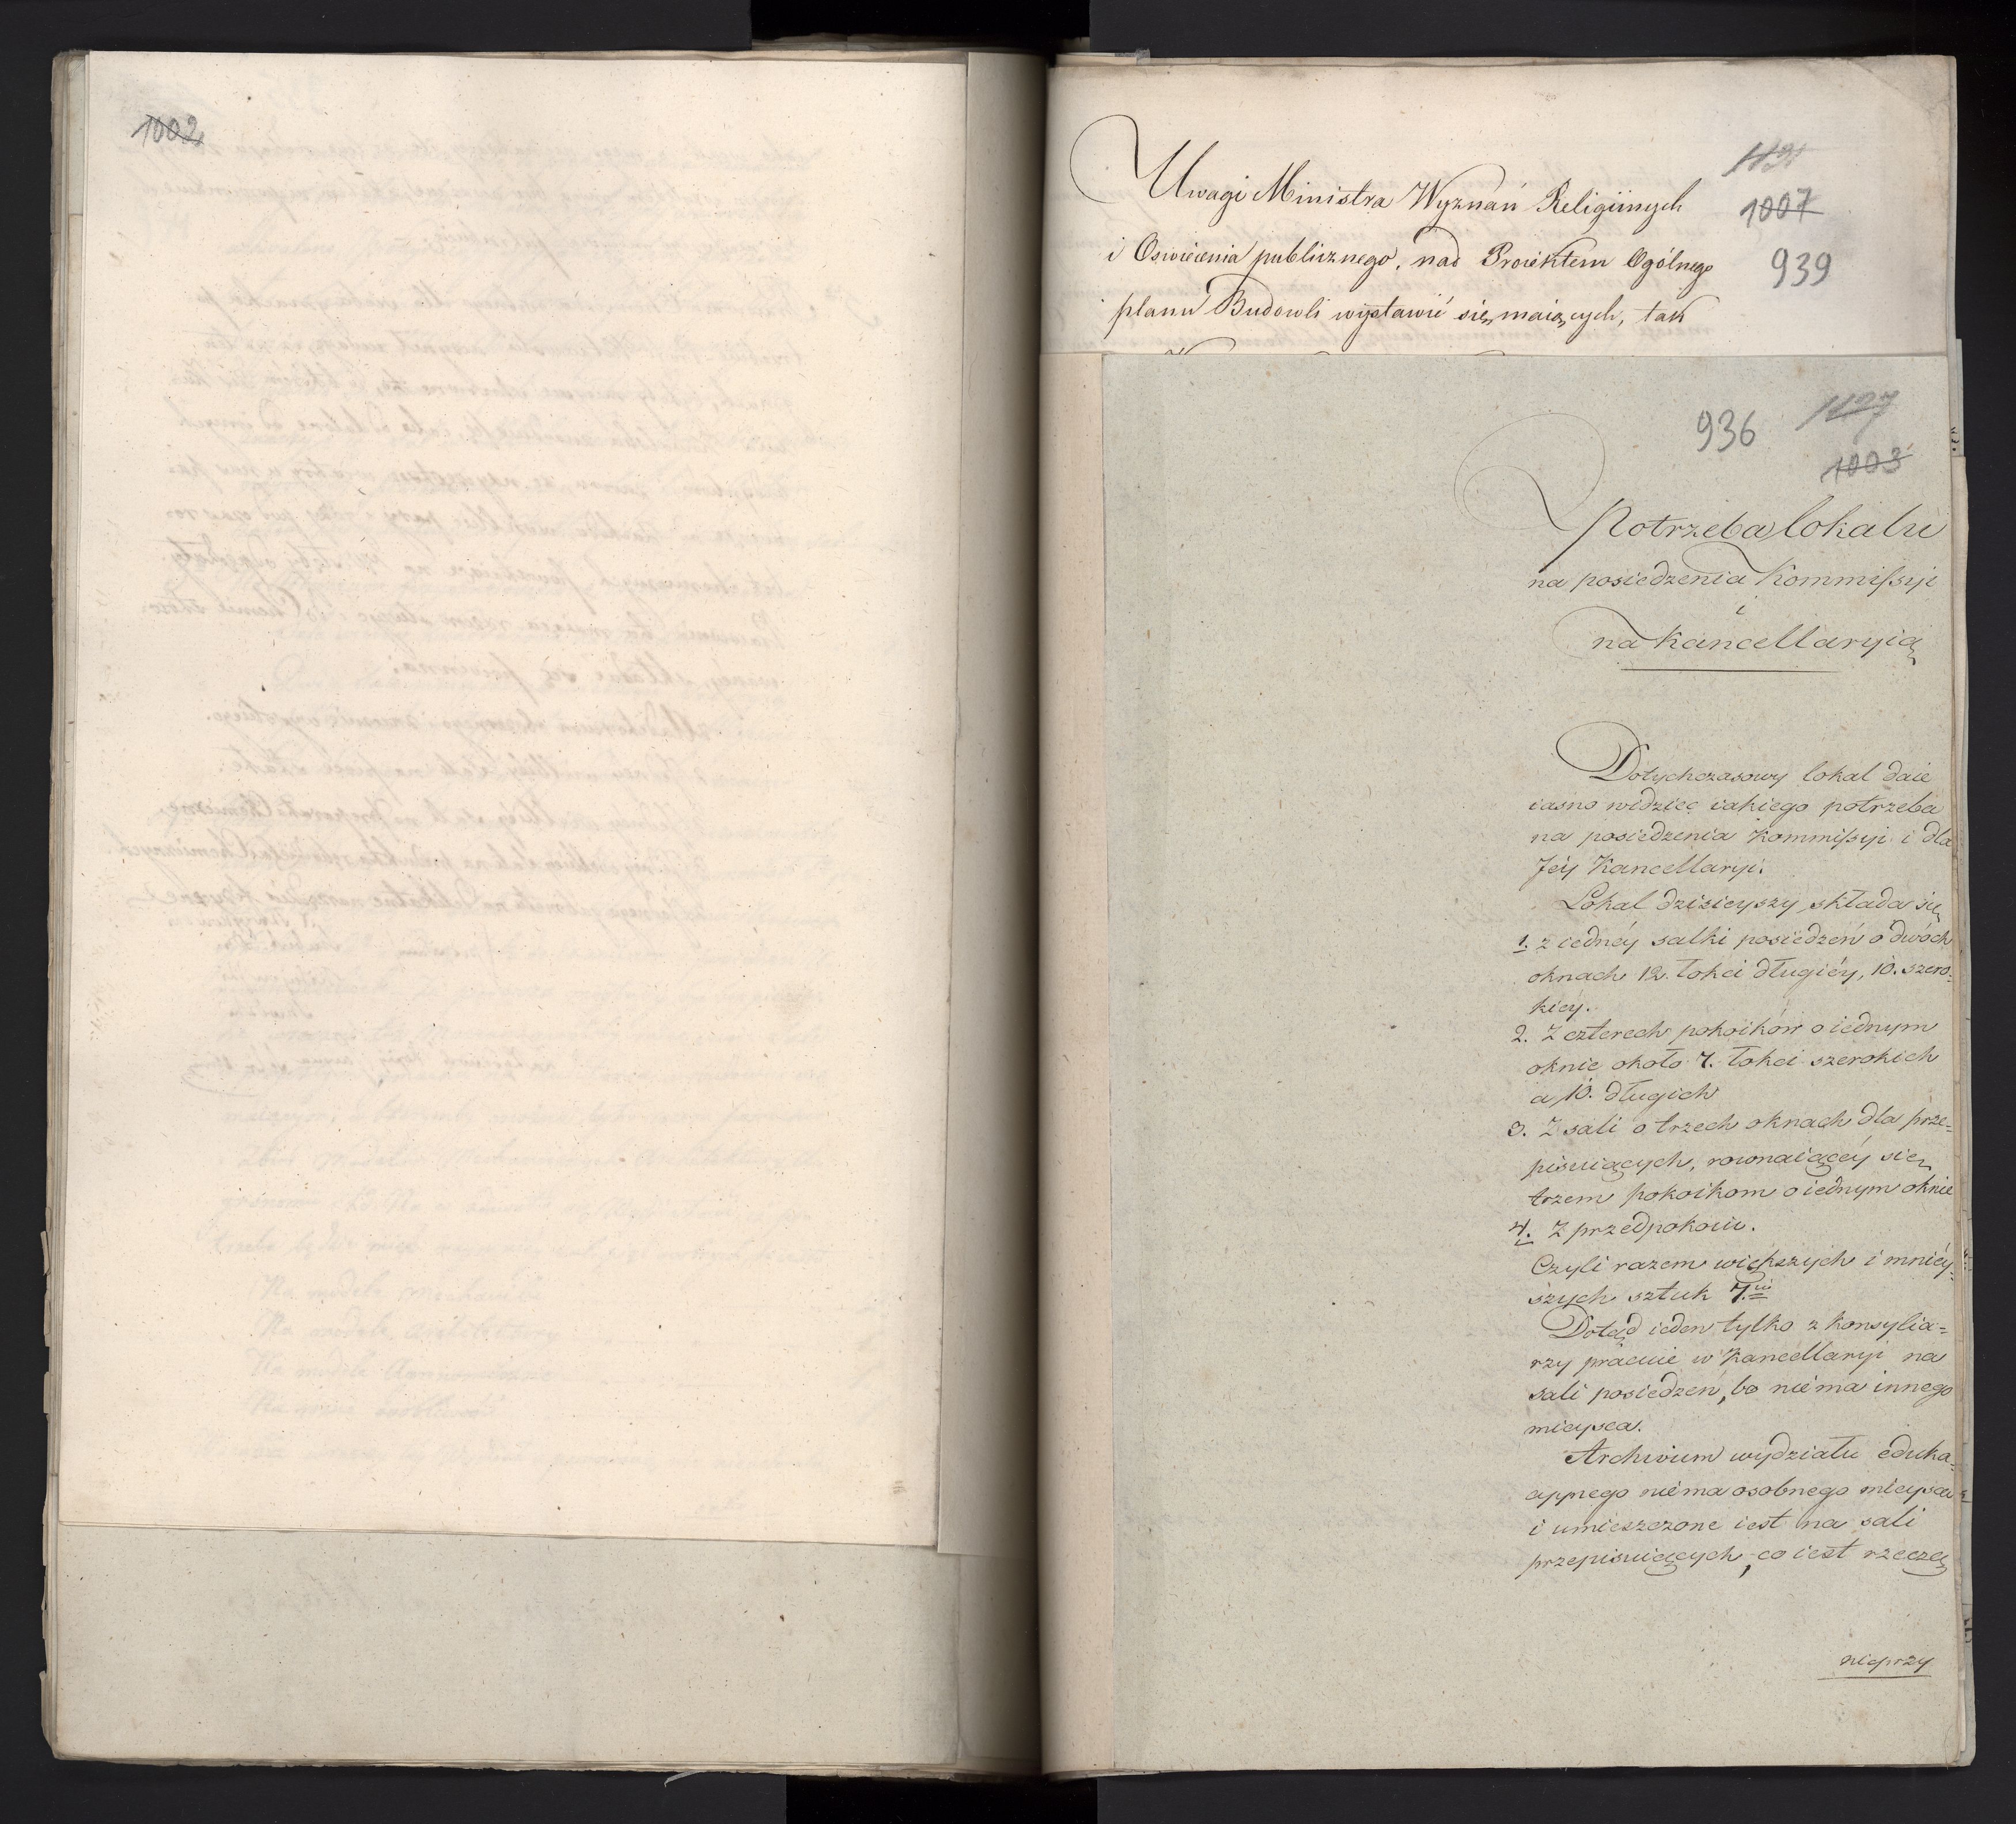 1002
Uwagi Ministra Wyznań Religiinych
i Oswiecenia publicznego, nad Proiektem Ogólnego
planu Budowli wystawić się maiących, tak
1007
939
936
1127
1003
Potrzeba lokalu
na posiedzenia Kommissyi
i
na Kancellaryią
Dotychczasowy lokal daie
iasno widzieć iakiego potrzeba
na posiedzenia Kommissyi i dla
Jéy Kancellaryi.
Lokal dzisieyszy składa się
1. z iednéy salki posiedzeń o dwóch
oknach 12. łokci długiéy, 10. szero-
kiey.
2. Z czterech pokoików o iednym
oknie około 7. łokci szerokich
a 10. długich
3. Z sali o trzech oknach dla prze=
pisuiących, rownaiącéy się
trzem pokoikom o iednym oknie
4. Z przedpokoiu.
Czyli razem większych i mniéy=
szych sztuk 7.
Dotąd ieden tylko z konsylia=
rzy pracuie w Kancellaryi na
sali posiedzeń, bo niéma innego
mieysca.
Archivum wydziału eduka=
cyynego niéma osobnego mieysca
i umieszczone iest na sali
przepisuiących, co iest rzeczą
nieprzy